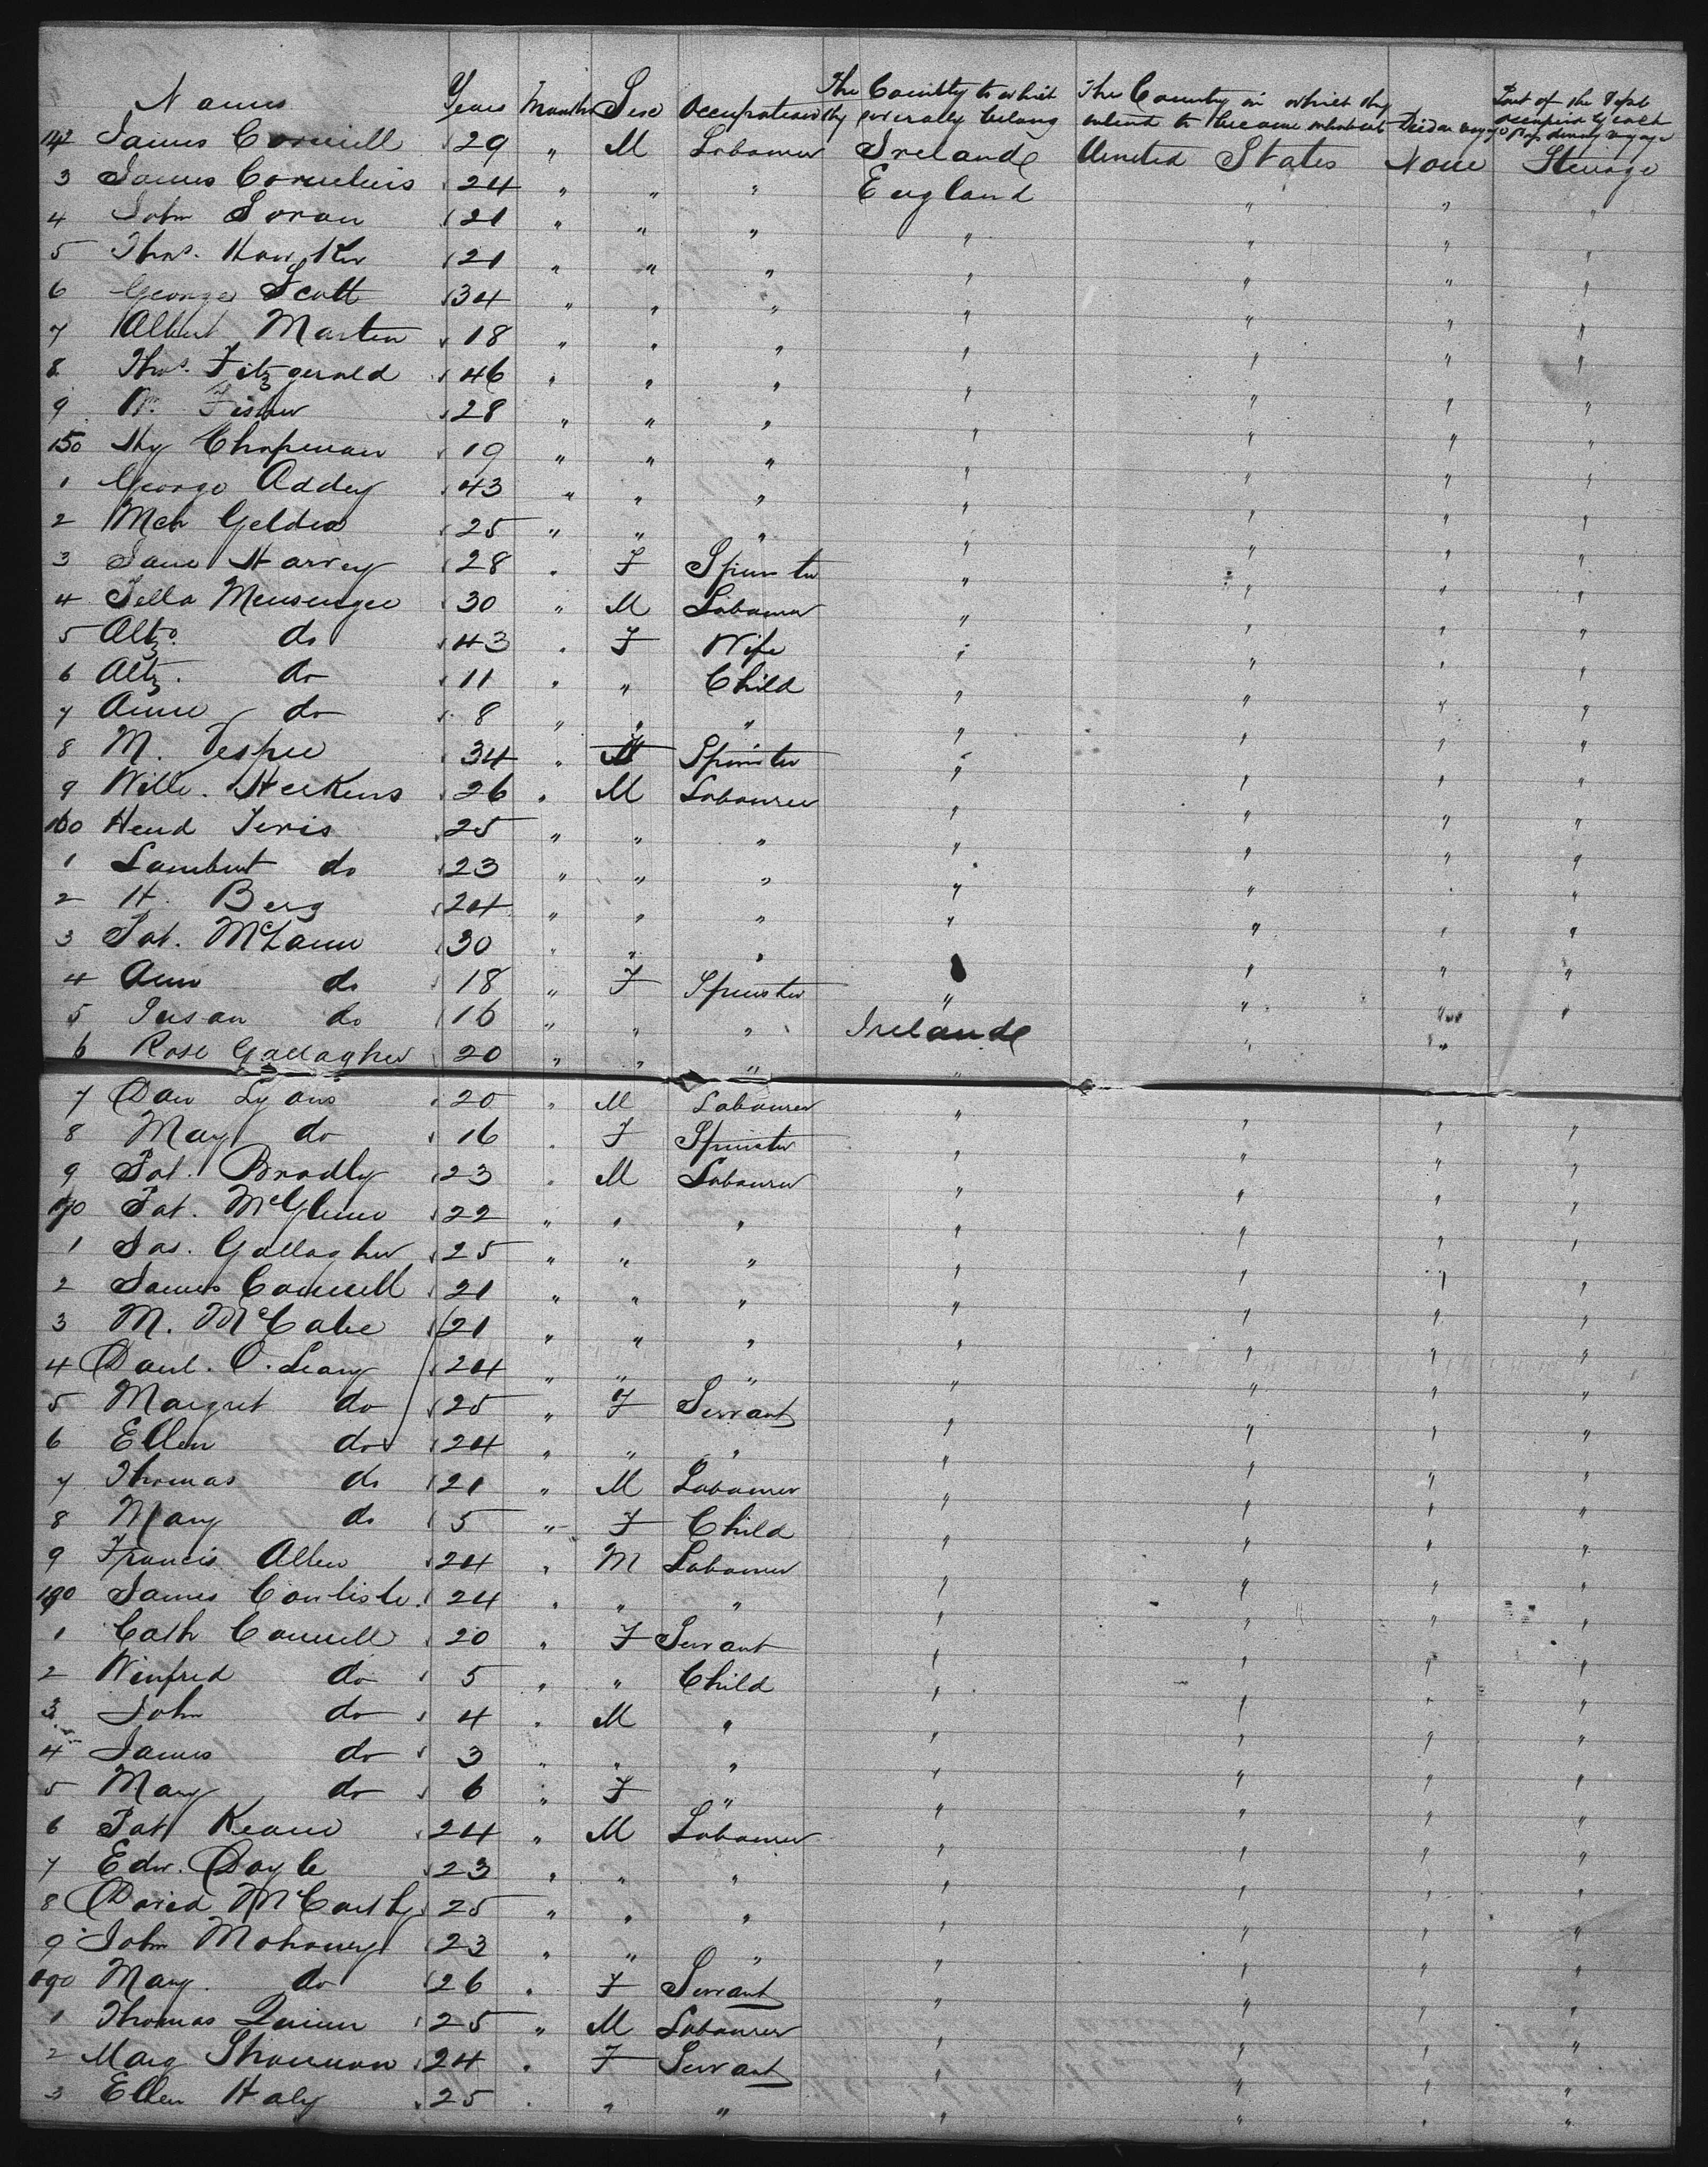 Names Years Months Sex Occupation The Country to which they severally belong The Country in which they intend to become inhabitants Died on voyage Part of the Vessel occupied by each during voyage
142 James Connell 29 " M Labourer Ireland United States None Steerage
3 James Cornelius 24 " " " England " " "
4 John Soran 21 " " " " " " "
5 Thos. 21 " " " " " " "
6 George Scott 34 " " " " " " "
7 Albert Martin 18 " " " " " " "
8 Thos. Fitzgerald 46 " " " " " " "
9 Wm. Fisher 28 " " " " " " "
150 Hy Chapman 19 " " " " " " "
1 George Addey 43 " " " " " " "
2 Geldea 25 " " " " " " "
3 Jane Harvey 28 " F Spinster " " " "
4 Jella Mensenger 30 " M Labourer " " " "
5 Altz. do 43 " F Wife " " " "
6 Altz. do 11 " " Child " " " "
7 Anne do 8 " " " " " " "
8 M. Jesper 34 " F Spinster " " " "
9 Will. Heekens 26 " M Labourer " " " "
160 Hend Jeris 25 " " " " " " "
1 Lambert do 23 " " " " " " "
2 H. Berg 24 " " " " " " "
3 Pat. McLann 30 " " " " " "
4 Ann do 18 " F Spinster " " " "
5 Susan do 16 " " " Ireland " "
6 Rose Gallagher 20 " " " " " "
7 Dan Lyons 20 " M Labourer " " " "
8 May do 16 " F Spinster " " " "
9 Pat. Bradly 23 " M Labourer " " " "
170 Pat. McGlinn 22 " " " " " " "
1 Jas. Gallagher 25 " " " " " " "
2 James Connell 21 " " " " " " "
3 M. McCabe 21 " " " " " " "
4 Danl. O. Leary 24 " " " " " " "
5 Margret do 25 " F Servant " " " "
6 Ellen do 24 " " " " " " "
7 Thomas do 21 " M Labourer " " " "
8 Mary do 5 " F Child " " " "
9 Francis Allen 24 " M Labourer " " " "
180 James Carlisle 24 " " " " " " "
1 Cath Connell 20 " F Servant " " " "
2 Winfred do 5 " " Child " " " "
3 John do 4 " M " " " " "
4 James do 3 " " " " " " "
5 Mary do 6 " F " " " " "
6 Pat Keane 24 " M Labourer " " " "
7 Edw. Doyle 23 " " " " " " "
8 David McCarthy 25 " " " " " " "
9 John Mahoney 23 " " " " " " "
190 Mary do 26 " F Servant " " " "
1 Thomas Quinn 25 " M Labourer " " " "
2 Marg Shannon 24 " F Servant " " " "
3 Ellen Haly 25 " " " " " " "